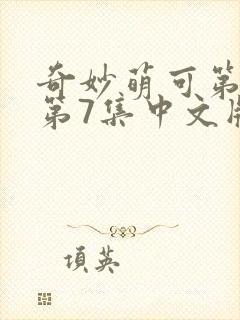 奇妙萌可第
第7集中文
項英